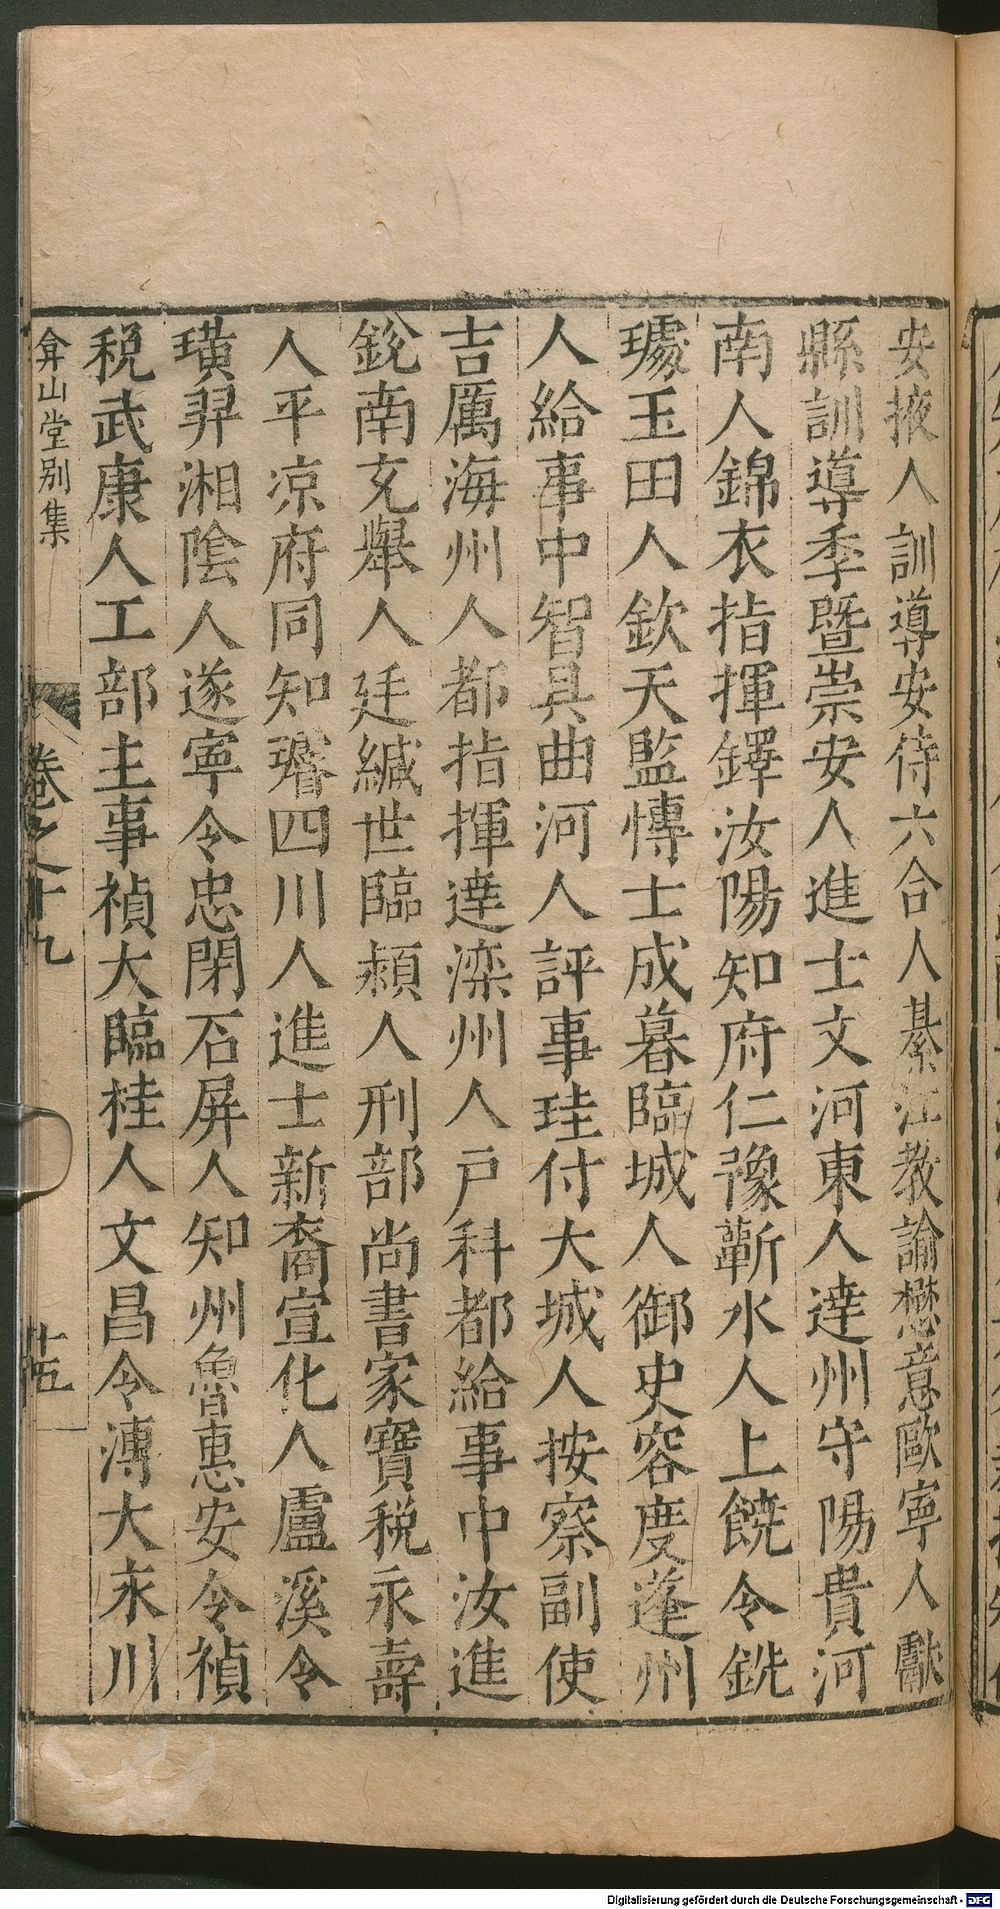 安掖人訓導安侍六合人綦江教諭懋意歐寧人獻
縣訓導季暨崇安人進士文河東人達州守陽貴河
南人錦衣指揮鐸汝陽知府仁豫蘄水人上饒令銑
璩玉田人欽天監愽士成暮臨城人御史容度蓬州
人給事中智具曲河人評事珪付大城人按察副使
吉厲海州人都指揮達滦州人戶科都給事中汝進
銳南充舉人廷緘世臨潁人刑部尚書家寶税永壽
人平凉府同知璿四川人進士新裔宣化人盧溪令
璜羿湘陰人遂寧令忠閉石屏人知州魯惠安令禎
稅武康人工部主事禎大臨桂人文昌令溥大永川
弇山堂別集
卷之十九
十五
Digitalisierung gefördert durch die Deutsche Forschungsgemeinschaft - DFG